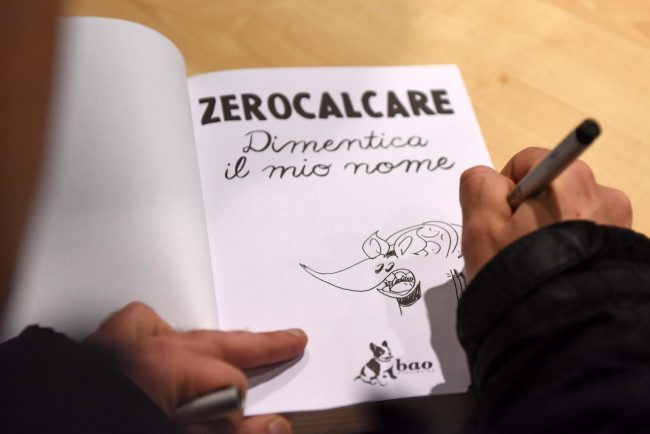 ZEROCALCARE
Dimentica
il mio nome
bao